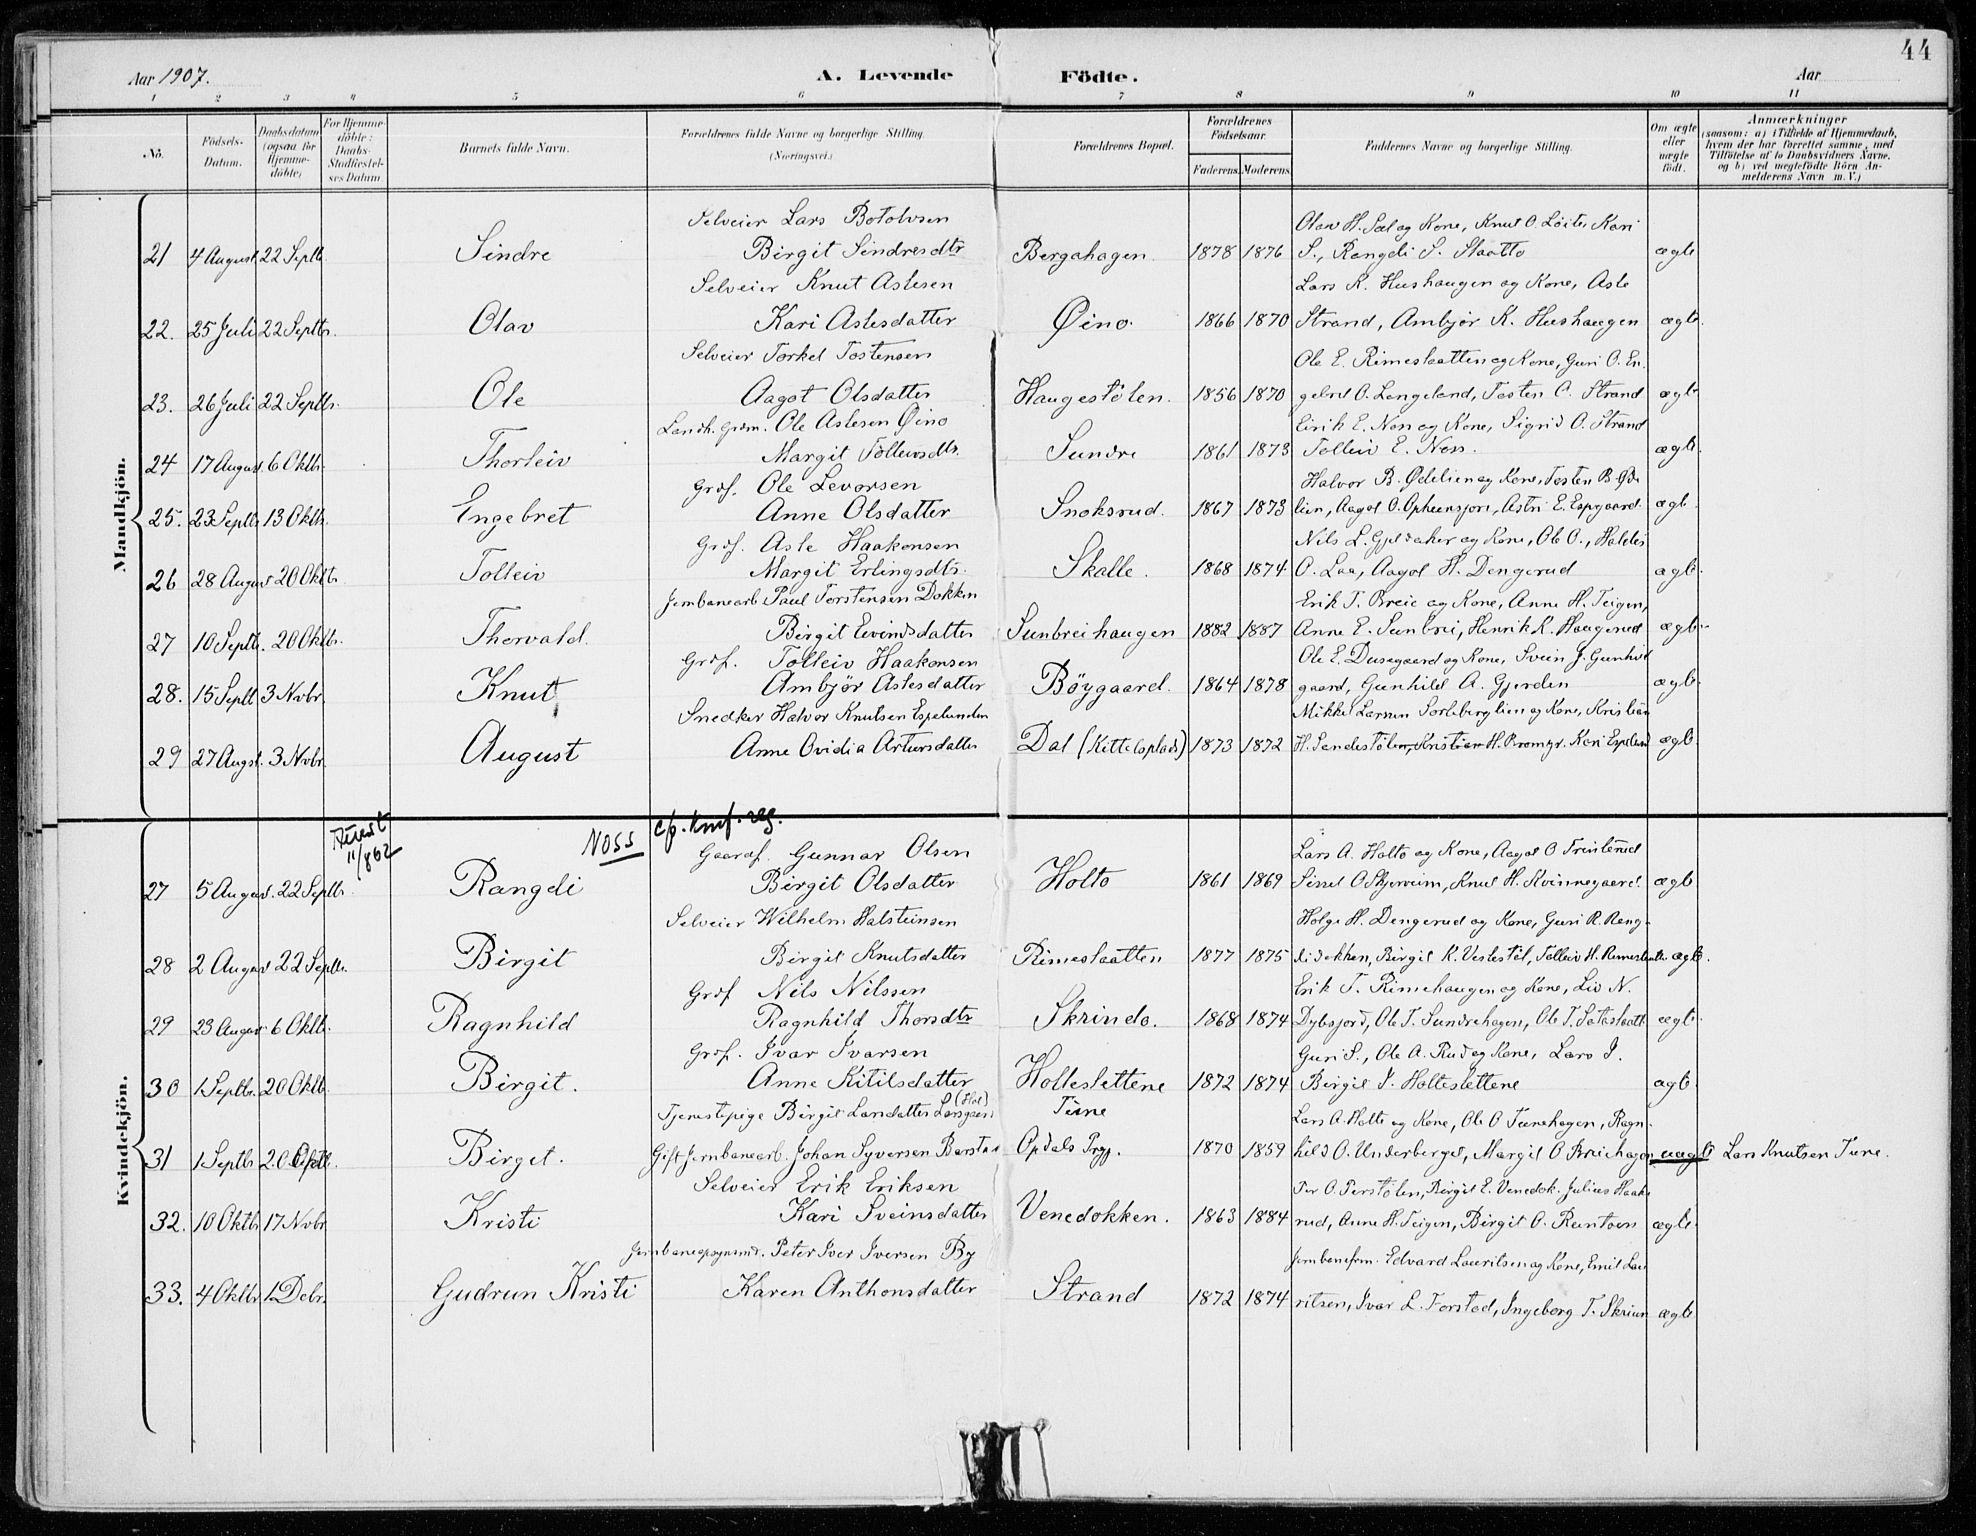 44
Aar 1907. A. Levende Födte. Aar
1 2 3 4 5 6 7 8 9 10 11
No. Födsels-Datum. Daabsdatum (ogsaa for Hjemme-döbte) For Hjemme-döbte: Daabs-Stadfæstel-ses Datum Barnets fulde Navn. Forældrenes fulde Navne og borgerlige Stilling (Næringsvei.) Forældrenes Bopæl. Forældrenes Födselsaar. Faderens. Moderens. Faddernes Navne og borgerlige Stilling. Om ægte eller uægte födt. Anmærkninger (saasom: a) i Tilfælde af Hjemmedaab, hvem der har forrettet samme, med Tilföielse af to Daabsvidners Navne. og b) ved uægtefödte Börn An-melderens Navn m.V.)
Mandkjön.
Selveier Lars Botolvsen Olav H. Sæl og Kone, Knut O. Löite, Kari
21 4 August 22 Septb. Sindre Birgit Sindresdtr Bergahagen 1878 1876 S., Rangdi S. Staatto ægte
Selveier Knut Aslesen Lars K. Hushaugen og Kone, Asle
22. 25 Juli 22 Septbr. Olav Kari Aslesdatter Øino. 1866 1870 Strand, Ambjør K. Hushaugen ægte.
Selveier Torkel Tostensen Ole E. Rimeslaatten og Kone, Guri O. En-
23. 26 Juli 22 Septbr. Ole Aagot Olsdatter Haugestölen. 1856 1870 gebret O. Lengeland, Tosten O. Strand ægte
Landh. Grdm. Ole Aslesen Øino Eirik E. Noss og Kone, Sigrid O. Strand
24 17 August. 6 Oktbr. Thorleiv Margit Tolleivsdtr. Sundre 1861 1873 Tolleiv E. Noss. ægte.
Grdf. Ole Levorsen Halvor B. Ødelien og Kone, Tosten B. Øde
25. 23 Septbr 13 Oktbr. Engebret Anne Olsdatter Snoksrud. 1867 1873 lien, Aagot O. Opheimsjore, Astri E. Espegaard. ægte.
Grdf. Asle Haakonsen Nils L. Gjeldaker og Kone, Ole O., Haldis
26 28 August 20 Oktbr. Tolleiv Margit Erlingsdtr. Skalle. 1868 1874 O. Laa, Aagot H. Dengerud ægte.
Jernbanearb. Paul Torstensen Dokken Erik T. Breie og Kone, Anne H. Teigen,
27 10 Septbr. 20 Oktbr. Thorvald. Birgit Eivindsdatter Sunbreihaugen 1882 1887 Anne E. Sunbrei, Henrik K. Haugerud ægte.
Grdf. Tolleiv Haakonsen Ole E. Dusegaard og Kone, Svein J. Gunhild
28. 15 Septb 3 Novbr. Knut Ambjör Aslesdatter Böygaard. 1864 1878 gaard, Gunhild A. Gjerden ægte.
Snedker Halvor Knutsen Espelunden Mikkel Larsen Sorteberglien og Kone, Kristian
29 27 Augst. 3 Novbr. August Anne Ovidia Artursdatter Dal (Kittelsplads) 1873 1872 H. Sandestölen, Kristian H. Bromyr. Kari Espelund ægte.
Kvindekjön.
11/862 Noss c/p. Kmf. reg.
Gaardf. Gunnar Olsen Lars A. Holto og Kone, Aagot O
27 5 August. 22 Septbr. Rangdi Birgit Olsdatter Holto 1861 1869 Sissel O Skjerveim, Knut H. Kvinnegaard. ægte
Selveier Wilhelm Halsteinsen Holge H. Dengerud og Kone, Guri R. Reng-
28 2 August 22 Septbr. Birgit Birgit Knutsdatter Rimeslaatten 1877 1875 didokken, Birgit K. Vestestöl, Tolleiv H. Rimeslaatte. ægte.
Grdf Nils Nilssen Erik T. Rimehaugen og Kone, Liv N.
29 23 August 6 Oktb. Ragnhild Ragnhild Thorsdtr Skrindo. 1868 1874 Dybsjord, Ole T. Sundrehagen, Ole T. ægte.
Grdf. Ivar Ivarsen Guri S., Ole A. Rud og Kone, Lars I.
30 1 Septbr. 20 Oktb. Birgit. Anne Kitilsdatter Holtesletterne 1872 1874 Birgit I. Holtesletterne ægte.
Tjenestepige Birgit Larsdatter (Hol) Tune Lars A. Holto og Kone, Ole O Tunehagen, Ragn-
31 1 Septbr 20 Birget. Gift Jernbanearb. Johan Syversen Barstad Opdals Prgj. 1870 1859 hild O. Underberget, Margit O Breiehagen uægte Lars Knutsen Tune.
Selveier Erik Eriksen Per O. Perstölen, Birgit E. Venedok. Julius Haake
32. 10 Oktbr 17 Novbr Kristi Kari Sveinsdatter Venedokken. 1863 1884 rud, Anne H. Teigen, Birgit O. Runtoen ægte.
Jernbaneopsynsmd. Peter Iver Iversen By Jernbaneform. Edvard Lauritsen og Kone, Emil Lau
33. 4 Oktbr 1 Debr. Gudrun Kristi Karen Anthonsdatter Strand 1872 1874 ritsen, Ivar L. Forstad, Ingeborg T. Skrium ægte